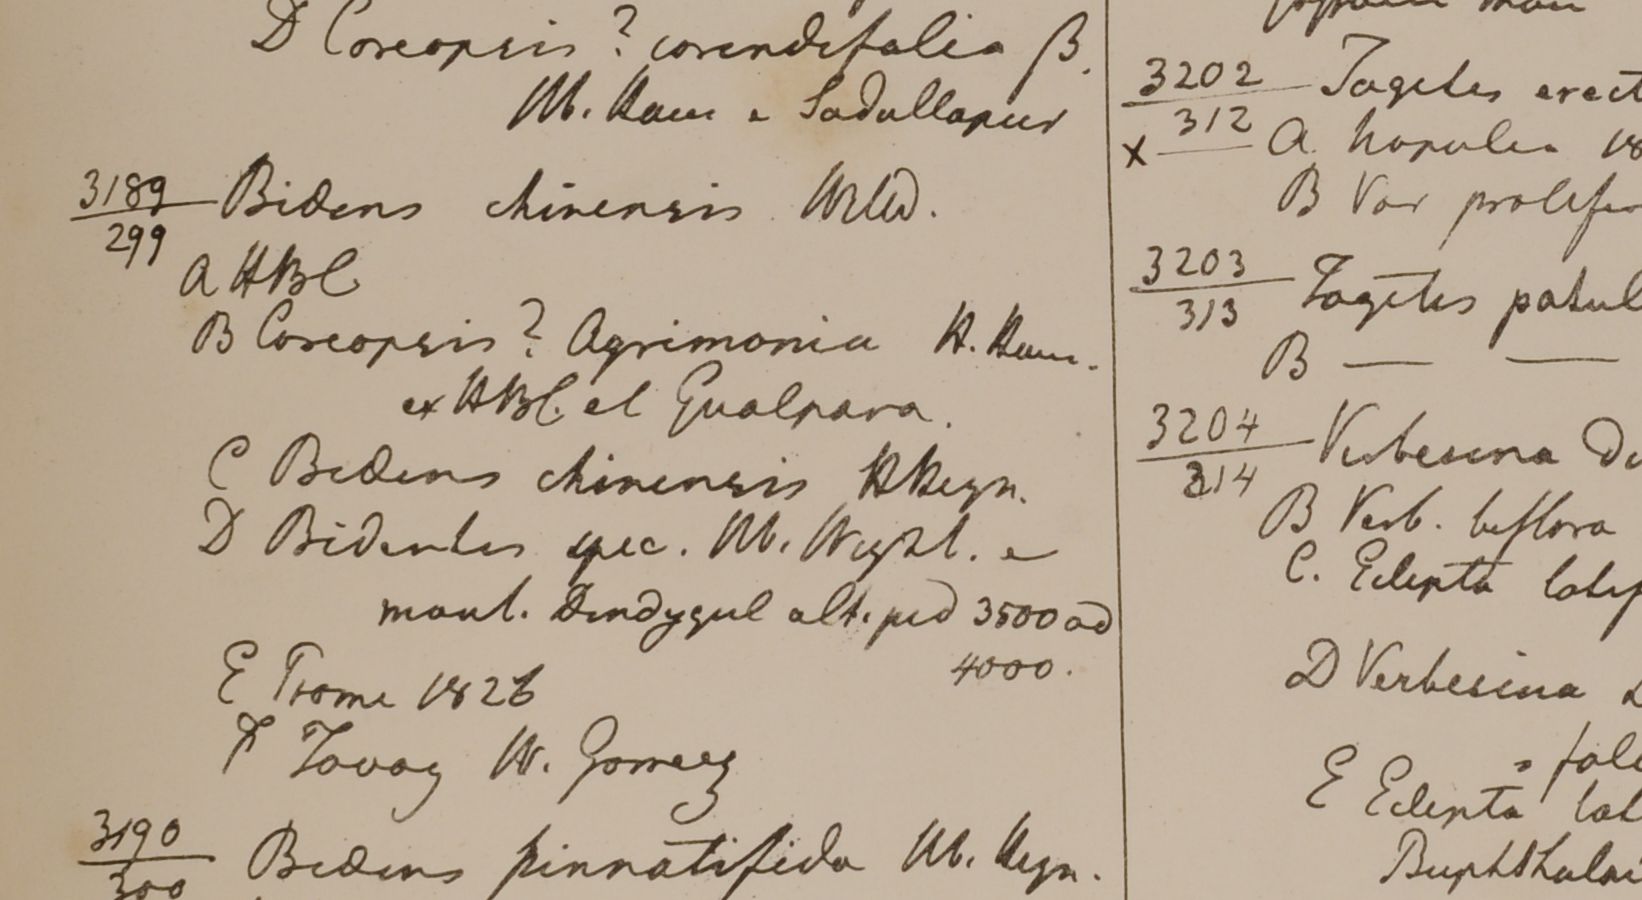 D Coreopsis? corendifolia β.
H. Ham e Sadullapur
3189 Bidens chinensis Willd.
299
A HBC
B Coreopsis? Agrimonia H. Ham.
ex HBC. et Gualpara.
C Bidens chinensis HHeyn.
D Bidentis spec. H. Wight. e
mont. Dindygul alt. ped 3500 ad
4000.
E Prome 1826
F Tavoy W. Gomez
3190 Bidens pinnatifida H. Heyn.
300
3202 Tagetes erect
312
x A hopulea 18
B Var prolifer
3203 Tagetes patul
313
B — —
3204 Verbesina Di
314
B Verb. biflora
C. Eclipta latif
D Verbesina
foli
E Eclipta lat
Buphthalm